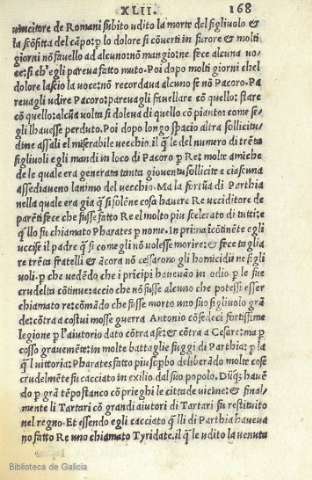 XLII. 168
uincitore de Romani subito udito la morte del figliuolo &
la scõfitta del cãpo: p lo dolore si cõuerti in furore & molti
giorni nõ fauello ad alcuno: nõ mangio: ne fece alcuna uo-
ce: si ch'egli pareua fatto muto. Poi dopo molti giorni chel
dolore lascio la uoce: nõ recordaua alcuno se nõ Pacoro. Pa
reuagli udire Pacoro: pareuagli fauellare cõ quello: stare
cõ quello: alcũa uolta si doleua di quello cõ pianto: come se-
gli lhauesse perduto. Poi dopo longo spacio altra sollicitu
dine assali el miserabile uecchio. il q̃ le del numero di trẽta
figliuoli egli mandi in loco di Pacoro p Re: molte amiche
de le quale era generata tanta giouentu: sollicite a ciascuna
assediaueno lanimo del uecchio. Ma la fortũa di Parthia
nella quale era gia q̃ si solẽne cosa hauere Re uccidi tore de
parẽti fece che fusse fatto Re el molto piu scelerato di tutti: e
q̃llo fu chiamato Pharates p nome. In prima: icõtinẽte egli
uccise il padre q̃ si come gli nõ uolesse morire: & fece taglia
re trẽta fratelli & ancora nõ cessarono gli homicidii ne figli
uoli. p che uedẽdo che i pricipi haueuão in odio p le sue
crudelta cõtinue: accio che nõ fusse alcuno che potessi esser
chiamato re: comãdo che fusse morto uno suo figliuolo grã
de: cõtra a costui mosse guerra Antonio cõ sedeci fortissime
legione p lautorio dato cõtra a se: & cõtra a Cesare: ma p
cosso grauemẽte: in molte battaglie fuggi di Parthia: p la
q̃l uittoria: Pharates fatto piu suꝑbo deliberãdo molte cose
crudelmẽte fu cacciato in exilio dal suo popolo. Dũq; hauẽ
do p grã tẽpo stanco cõ prieghi le cittade uicine: & final
mente li Tartari cõ grandi aiutori di Tartari fu restituito
nel regno. Et essendo egli cacciato q̃lli di Parthia haueua
no fatto Re uno chiamato Tyridate. il q̃ le udito la uenuta
Biblioteca de Galicia